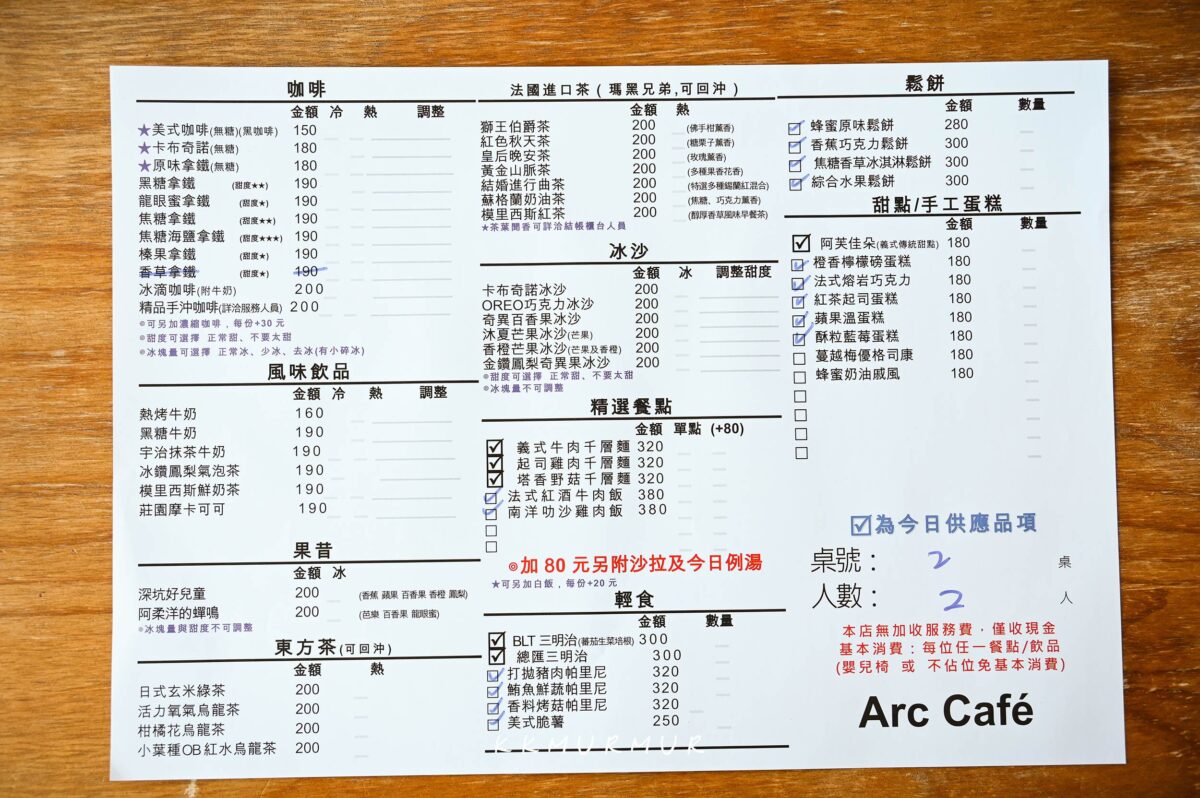 咖啡
金額 冷 熱 調整
★美式咖啡(無糖)(黑咖啡) 150
★卡布奇諾(無糖) 180
★原味拿鐵(無糖) 180
黑糖拿鐵 (甜度★★) 190
龍眼蜜拿鐵 (甜度★) 190
焦糖拿鐵 (甜度★★) 190
焦糖海鹽拿鐵 (甜度★★★) 190
榛果拿鐵 (甜度★) 190
香草拿鐵 (甜度★) 190
冰滴咖啡(附牛奶) 200
精品手沖咖啡(詳洽服務人員) 200
◎可另加濃縮咖啡，每份+30 元
◎甜度可選擇 正常甜、不要太甜
◎冰塊量可選擇 正常冰、少冰、去冰(有小碎冰)
風味飲品
金額 冷 熱 調整
熱烤牛奶 160
黑糖牛奶 190
宇治抹茶牛奶 190
冰鑽鳳梨氣泡茶 190
模里西斯鮮奶茶 190
莊園摩卡可可 190
果昔
金額 冰
深坑好兒童 200 (香蕉 蘋果 百香果 香橙 鳳梨)
阿柔洋的蟬鳴 200 (芭樂 百香果 龍眼蜜)
◎冰塊量與甜度不可調整
東方茶(可回沖)
金額 熱
日式玄米綠茶 200
活力氧氣烏龍茶 200
柑橘花烏龍茶 200
小葉種OB紅水烏龍茶 200
法國進口茶 ( 瑪黑兄弟,可回沖 )
金額 熱
獅王伯爵茶 200 (佛手柑薰香)
紅色秋天茶 200 (糖栗子薰香)
皇后晚安茶 200 (玫瑰薰香)
黃金山脈茶 200 (多種果香花香)
結婚進行曲茶 200 (特選多種錫蘭紅混合)
蘇格蘭奶油茶 200 (焦糖、巧克力薰香)
模里西斯紅茶 200 (醇厚香草風味早餐茶)
★茶葉聞香可詳洽結帳櫃台人員
冰沙
金額 冰 調整甜度
卡布奇諾冰沙 200
OREO巧克力冰沙 200
奇異百香果冰沙 200
沐夏芒果冰沙(芒果) 200
香橙芒果冰沙(芒果及香橙) 200
金鑽鳳梨奇異果冰沙 200
◎甜度可選擇 正常甜、不要太甜
◎冰塊量不可調整
精選餐點
金額 單點 (+80)
義式牛肉千層麵 320
起司雞肉千層麵 320
塔香野菇千層麵 320
法式紅酒牛肉飯 380
南洋叻沙雞肉飯 380
◎加 80 元另附沙拉及今日例湯
★可另加白飯，每份+20 元
輕食
金額 數量
BLT 三明治(蕃茄生菜培根) 300
總匯三明治 300
打拋豬肉帕里尼 320
鮪魚鮮蔬帕里尼 320
香料烤菇帕里尼 320
美式脆薯 250
KKMURMUR
鬆餅
金額 數量
蜂蜜原味鬆餅 280
香蕉巧克力鬆餅 300
焦糖香草冰淇淋鬆餅 300
綜合水果鬆餅 300
甜點/手工蛋糕
金額 數量
阿芙佳朵(義式傳統甜點) 180
橙香檸檬磅蛋糕 180
法式熔岩巧克力 180
紅茶起司蛋糕 180
蘋果溫蛋糕 180
酥粒藍莓蛋糕 180
蔓越梅優格司康 180
蜂蜜奶油戚風 180
為今日供應品項
桌號： 2 桌
人數： 2 人
本店無加收服務費，僅收現金
基本消費：每位任一餐點/飲品
(嬰兒椅 或 不佔位免基本消費)
Arc Café